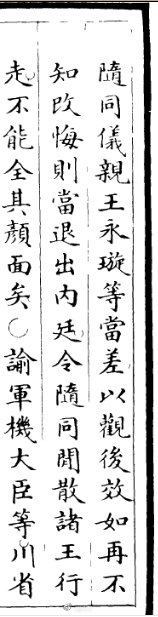 隨同儀親王永璇等當差以觀後效如再不
知改悔則當退出内廷令隨同閒散諸王行
走不能全其顏面矣○諭軍機大臣等川省